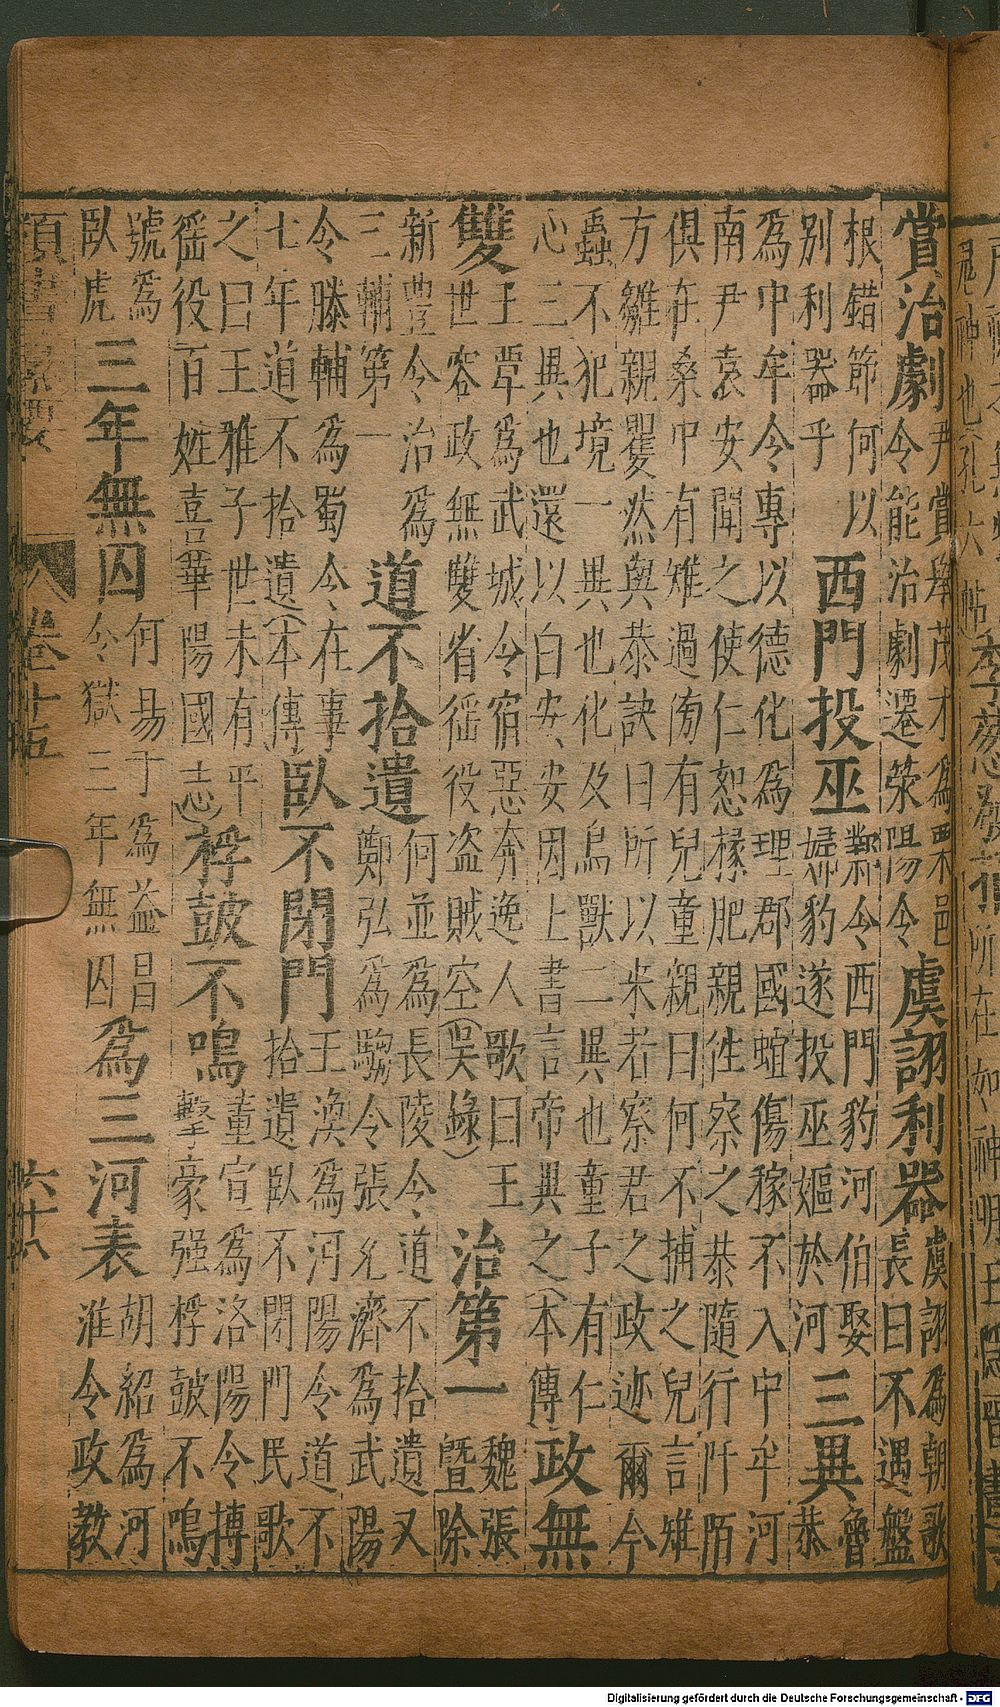 賞治劇 尹賞舉茂才為粟邑
令能治劇遷滎陽令 虞詡利器 虞詡為朝歌
長曰不遇盤
根錯節何以
別利器乎 西門投巫 鄴令西門豹河伯娶
婦豹遂投巫嫗於河 三異 魯
恭
為中牟令專以德化為理郡國蝗傷稼不入中牟河
南尹袁安聞之使仁恕椽肥親徃察之恭隨行阡陌
俱在桑中有雉過傍有兒童親曰何不捕之兒言雉
方雛親瞿然與恭訣曰所以来者察君之政迹爾今
蟲不犯境一異也化及鳥獸二異也童子有仁
心三異也還以白安安因上書言帝異之(本傳) 政無
雙 王覃為武城令宿惡奔逸人歌曰王
世容政無雙省徭役盗賊空(吳錄) 治第一 魏張
暨除
新豐令治為
三輔第一 道不拾遺 何並為長陵令道不拾遺又
鄭弘為騶令張允濟為武陽
令滕輔為蜀令在事
七年道不拾遺(本傳) 臥不閉門 王渙為河陽令道不
拾遺臥不閉門民歌
之曰王稚子世未有平
徭役百姓喜(華陽國志) 桴鼓不鳴 董宣為洛陽令搏
擊豪强桴鼓不鳴
號為
臥虎 三年無囚 何易于為益昌
令獄三年無囚 為三河表 胡紹為河
淮令政教
卷十五
六十八
Digitalisierung gefördert durch die Deutsche Forschungsgemeinschaft - DFG